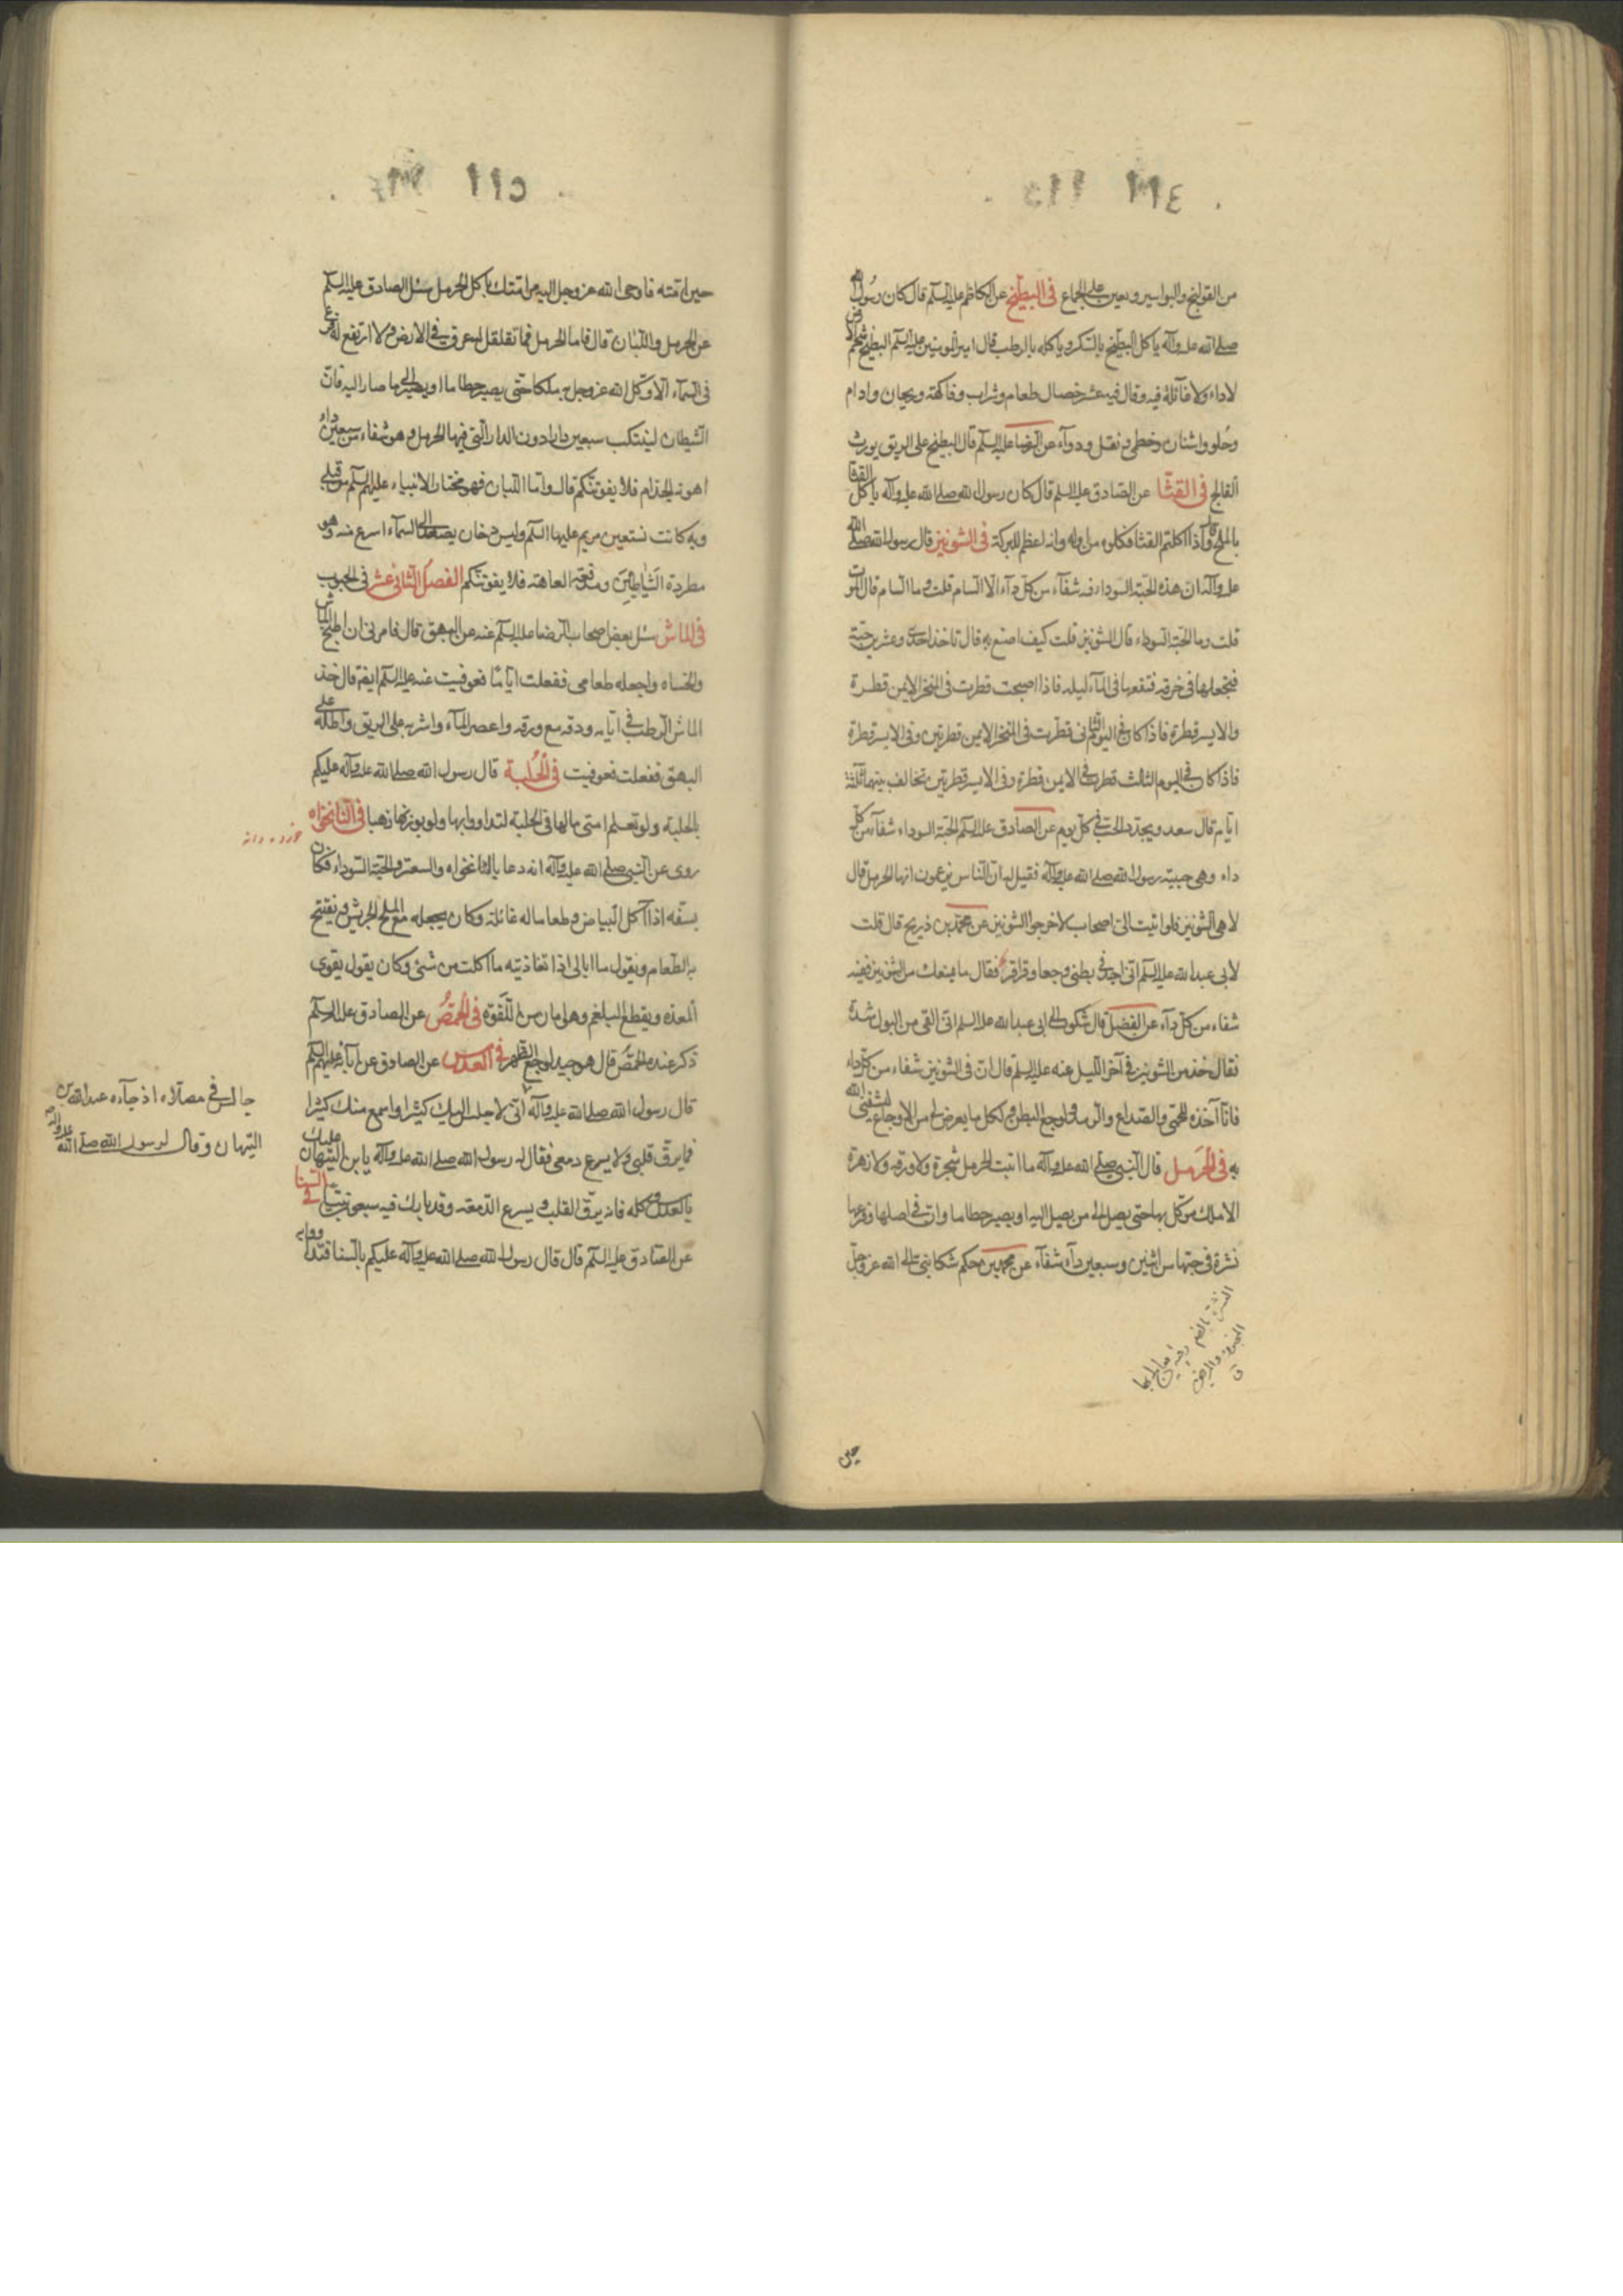 ١١٤
من القولنج والبواسير ويعين على الجماع فى البطيخ عن الكاظم عليه السلم قال كان رسول الله
صلى الله عليه وآله ياكل البطيخ بالسكر وياكله بالرطب قال امير المومنين عليه السلم البطيخ شحمة الارض
لاداء ولا غائلة فيه وقال فيه عشر خصال طعام وشراب وفاكهة وريحان وادام
وحلو واشنان وخطمى ونقل ودواء عن الرضا عليه السلم قال البطيخ على الريق يورث
الفالج فى القثا عن الصادق عليه السلم قال كان رسول الله صلى الله عليه وآله ياكل القثا
بالملح وقال اذا اكلتم القثا فكلوه من اوله وانه اعظم للبركة فى الشونيز قال رسول الله صلى الله
عليه وآله ان هذه الحبة السوداء فيه شفآء من كل دآء الا السام قلت وما السام قال الموت
قلت وما الحبة السوداء قال الشونيز قلت كيف اصنع به قال تاخذ احدى وعشرين حبة
فتجعلها فى خرقة فتنقعها فى المآء ليلة فاذا اصبحت قطرت فى المنخر الايمن قطرة
والايسر قطرة فاذا كان فى اليوم الثانى قطرت فى المنخر الايمن قطرتين وفى الايسر قطرة
فاذا كان فى اليوم الثالث قطرت فى الايمن قطرة وفى الايسر قطرتين تخالف بينهما ثلثة
ايام قال سعد ويجدد الحب فى كل يوم عن الصادق عليه السلم الحبة السوداء شفآء من كل
داء وهى حبيبة رسول الله صلى الله عليه وآله فقيل له ان الناس يزعمون انها الحرمل قال
لا هى الشونيز فلو اتيت الى اصحابه لاخرجوا الشونيز عن محمد بن ذريح قال قلت
لابى عبد الله عليه السلم انى اجد فى بطنى وجعا وقراقر فقال ما يمنعك من الشونيز ففيه
شفاء من كل دآء عن الفضل قال شكوت الى ابى عبد الله عليه السلم انى القى من البول شدة
فقال خذ من الشونيز فى آخر الليل عنه عليه السلم قال ان فى الشونيز شفاء من كل داء
فانا آخذه للحمى والصداع والرمد ولوجع البطن ولكل ما يعرض لى من الاوجاع يشفينى الله
به فى الحرمل قال النبى صلى الله عليه وآله ما انبت الحرمل شجرة ولا ورقة ولا زهرة
الا وملك موكل بها حتى يصل الى من يصل اليه او يصير حطاما وان فى اصلها وفرعها
نشرة فى حبتها من اثنين وسبعين دآء شفآء عن محمد بن حكم شكا نبى الى الله عز وجل
النشرة بالضم رقية يعالج بها
المجنون والمريض
ق
حين
١١٥
حين امته فاوحى الله عز وجل اليه مر امتك باكل الحرمل سئل الصادق عليه السلم
عن الحرمل واللبان قال فاما الحرمل فما تقلقل له عرق فى الارض ولا ارتفع له فرع
فى السمآء الا وكل الله عز وجل به ملكا حتى يصير حطاما او يصير الى ما صار اليه فان
الشيطان ليتنكب سبعين دارا دون الدار التى فيها الحرمل وهو شفاء من سبعين داء
اهونه الجذام فلا يفوتنكم قال واما اللبان فهو مختار الانبياء عليهم السلم من قبلى
وبه كانت تستعين مريم عليها السلم وليس دخان يصعد الى السمآء اسرع منه وهو
مطردة الشياطين ومدفعة العاهة فلا يفوتنكم الفصل الثانى عشر فى الحبوب
فى الماش سئل بعض اصحاب الرضا عليه السلم عنه عن البهق قال فامرنى ان اطبخ الماش
واتحساه واجعله طعامى ففعلت اياما فعوفيت عنه عليه السلم ايضا قال خذ
الماش الرطب فى ايامه ودقه مع ورقه واعصر المآء واشربه على الريق واطله على
البهق ففعلت فعوفيت فى الحلبة قال رسول الله صلى الله عليه وآله عليكم
بالحلبة ولو تعلم امتى ما لها فى الحلبة لتداووا بها ولو بوزنها ذهبا فى النانخواه
روى عن النبى صلى الله عليه وآله انه دعا بالنانخواه والسعتر والحبة السوداء فكان
يستفه اذا اكل البياض وطعاما له غائلة وكان يجعله مع الملح الجريش ويفتتح
به الطعام ويقول ما ابالى اذا تغاديته ما اكلت من شئ وكان يقول يقوى
المعدة ويقطع البلغم وهو امان من اللقوة فى الحمص عن الصادق عليه السلم
ذكر عنده الحمص قال هو جيد لوجع الظهر فى العدس عن الصادق عن آبائه عليهم السلم
قال رسول الله صلى الله عليه وآله انى لاجلس اليك كثيرا واسمع منك كثيرا
فما يرق قلبى ولا يسرع دمعى فقال له رسول الله صلى الله عليه وآله يا بن التيهان عليك
بالعدس وكله فانه يرق القلب ويسرع الدمعة وقد بارك فيه سبعون نبيا فى السنا
عن الصادق عليه السلم قال قال رسول الله صلى الله عليه وآله عليكم بالسنا فتداووا به
جالس فى مصلاه اذ جآءه عبد الله بن
التيهان وقال لرسول الله صلى الله عليه وآله